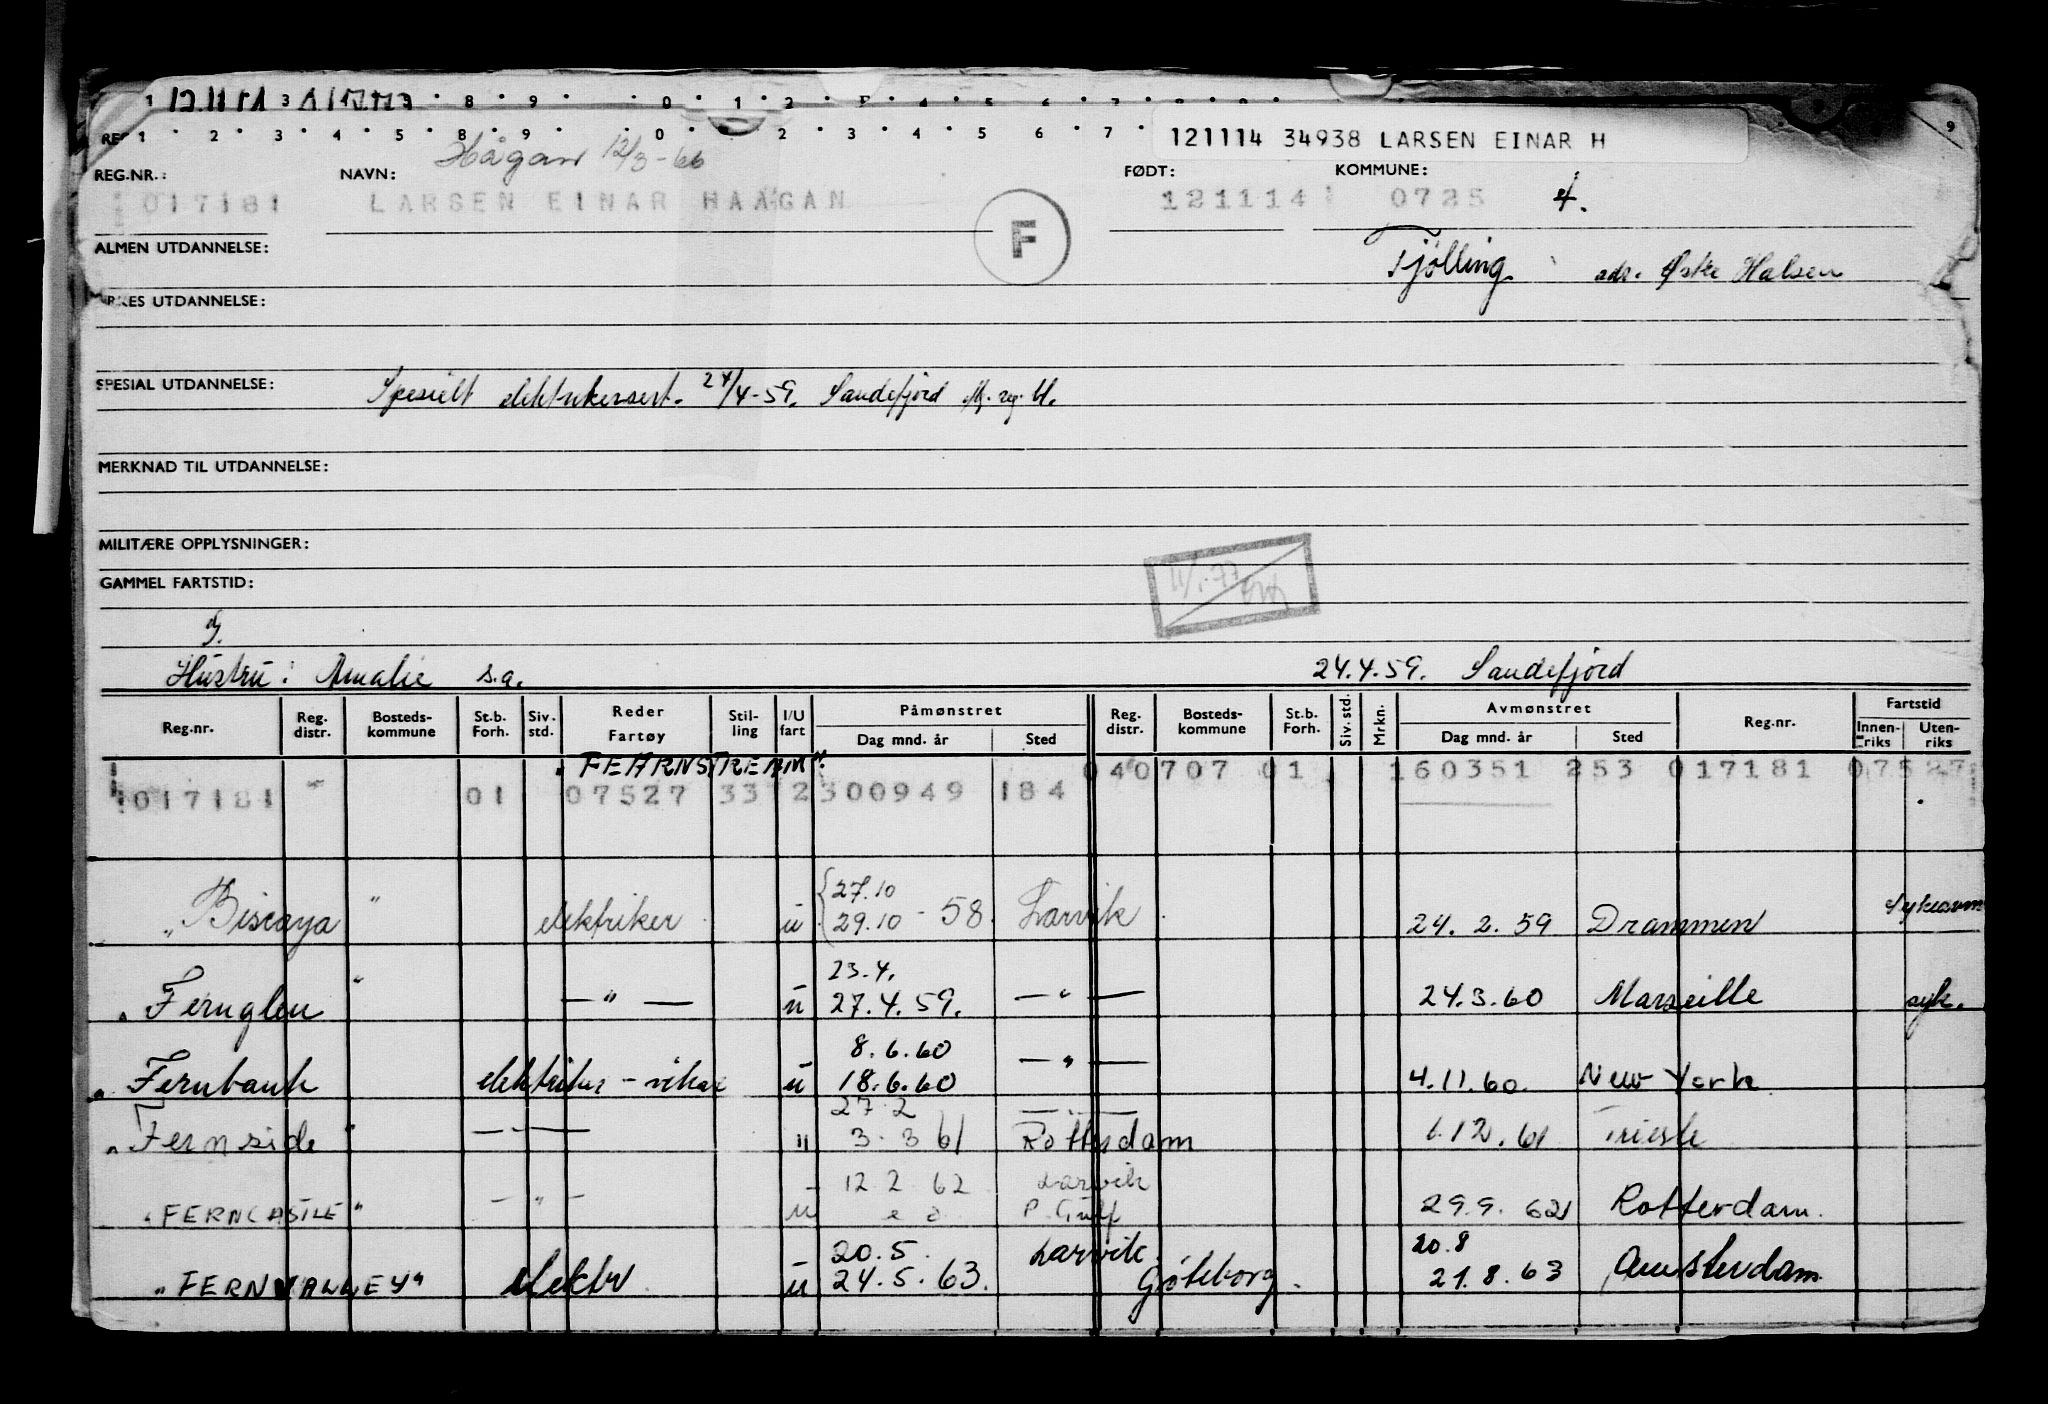 121114 34938 LARSEN EINAR H
Hågan 12/3-66
REG.NR.: NAVN: FØDT: KOMMUNE:
017181 LARSEN EINAR HAAGAN 121114 0725 4.
F
ALMEN UTDANNELSE: Tjølling. adr. Østre Halsen
YRKES UTDANNELSE:
SPESIAL UTDANNELSE: Spesielt elektrikersert. 24/4-59. Sandefjord
MERKNAD TIL UTDANNELSE:
MILITÆRE OPPLYSNINGER:
GAMMEL FARTSTID:
11/1-77
Hustru: Amalie s.a. 24.4.59. Sandefjord
Reg.nr. Reg. distr. Bosteds-kommune St.b. Forh. Siv. std. Reder Fartøy Stil-ling I/U fart Påmønstret Dag mnd. år Sted Reg. distr. Bosteds-kommune St.b. Forh. Siv. std. Mrkn. Avmønstret Dag mnd. år Sted Reg.nr. Fartstid Innen-riks Uten-riks
"FEARNSTREAM" 040707 01 160351 253 017181 07527
017181 01 07527 33 2 300949 184
"Biscaya" elektriker u 27.10 29.10-58. Larvik 24.2.59 Drammen Sykeavm
"Fernglen" —"— u 23.4. 27.4.59. —"— 24.3.60 Marseille syk.
"Fernbank elektriker-vikar u 8.6.60 18.6.60 —"— 4.11.60. New York
"Fernside" —"— u 27.2 3.3 61 —"— Rotterdam 1.12.61 Trieste
"FERNCASTLE" —"— u 12.2.62 Larvik P. Gulf 29.9.62 Rotterdam.
"FERNVALLEY" elektr u 20.5. 24.5.63. Larvik. Göteborg. 20.8 21.8.63 Amsterdam